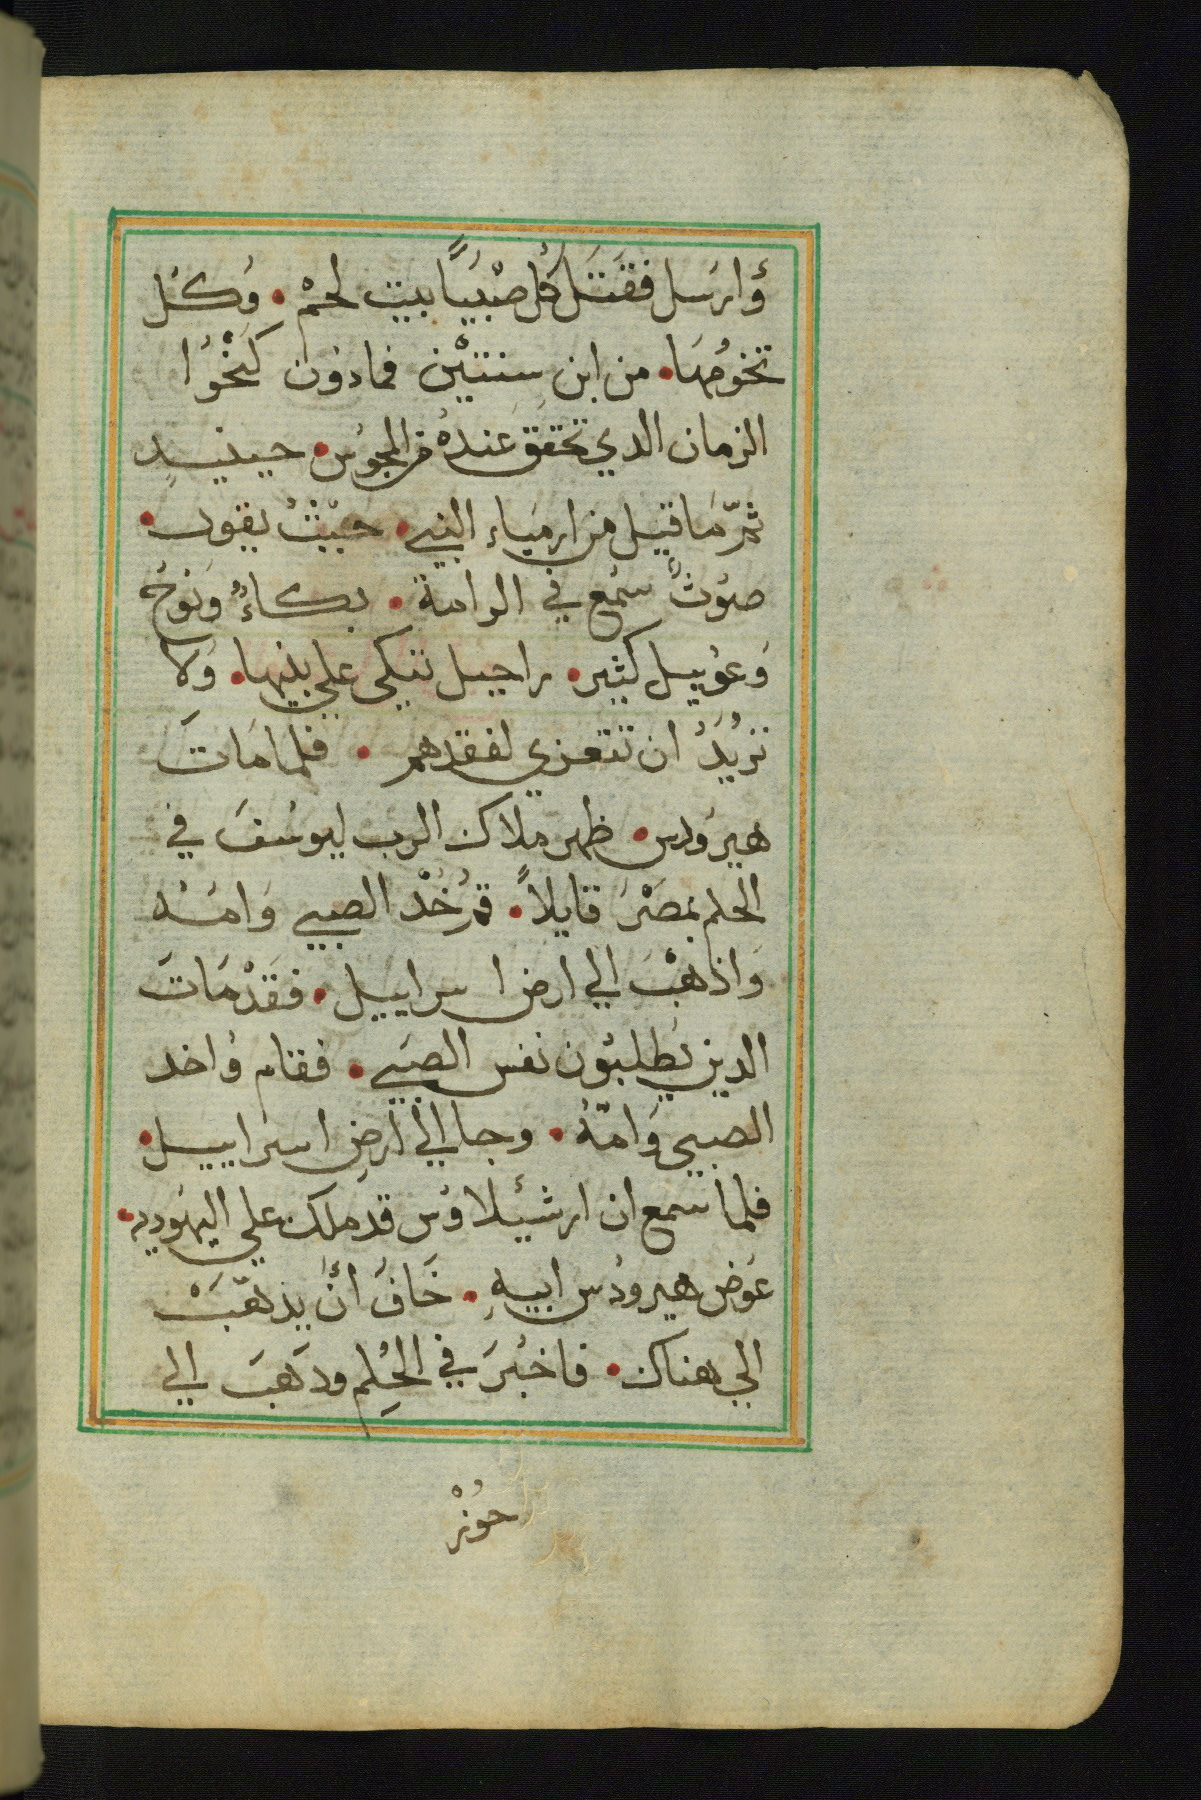 وَارسَل فقَتَل كُل صْبيَيًا بيت لحمْ • وَكُل
تخومُهَا • من ابن سنتيْن فمادوُن كَنحْوُا
الزمان الدي تحقق عَندهُ من المجوُس • حينيدٍ
ثمّر مَا قيل من ارميَاء النبي • حيْثُ يقول •
صوْتٌ سُمع في الرامة • بكاءٌ ونوحٌ
وَعوُيل كثير • راحيل تبكي علي بنيها • وَلا
تريُدُ ان تتعزي لفقدهم • فلما مَاتَ
هيروَدس • ظهر ملاك الرب ليوسُفَ في
الحلم بمصْرَ قايلاً • قمْ خُدْ الصبي وَامُه
وَاذهبْ الي ارض اسراييل • فقَدْ مَاتَ
الدين يُطلبُون نفس الصبَي • فقام وُاخد
الصبي وَامّهُ • وجا الي ارض اسراييل •
فلما سمع ان ارشيُلاوُس قد ملك علي اليهُوديه •
عوَض هيرودُس ابيهِ • خَافَ أنَّ يذهبَّْ
الي هناك • فاخبَرَ في الحُلِم ودَهبَ الي
حوُزْ